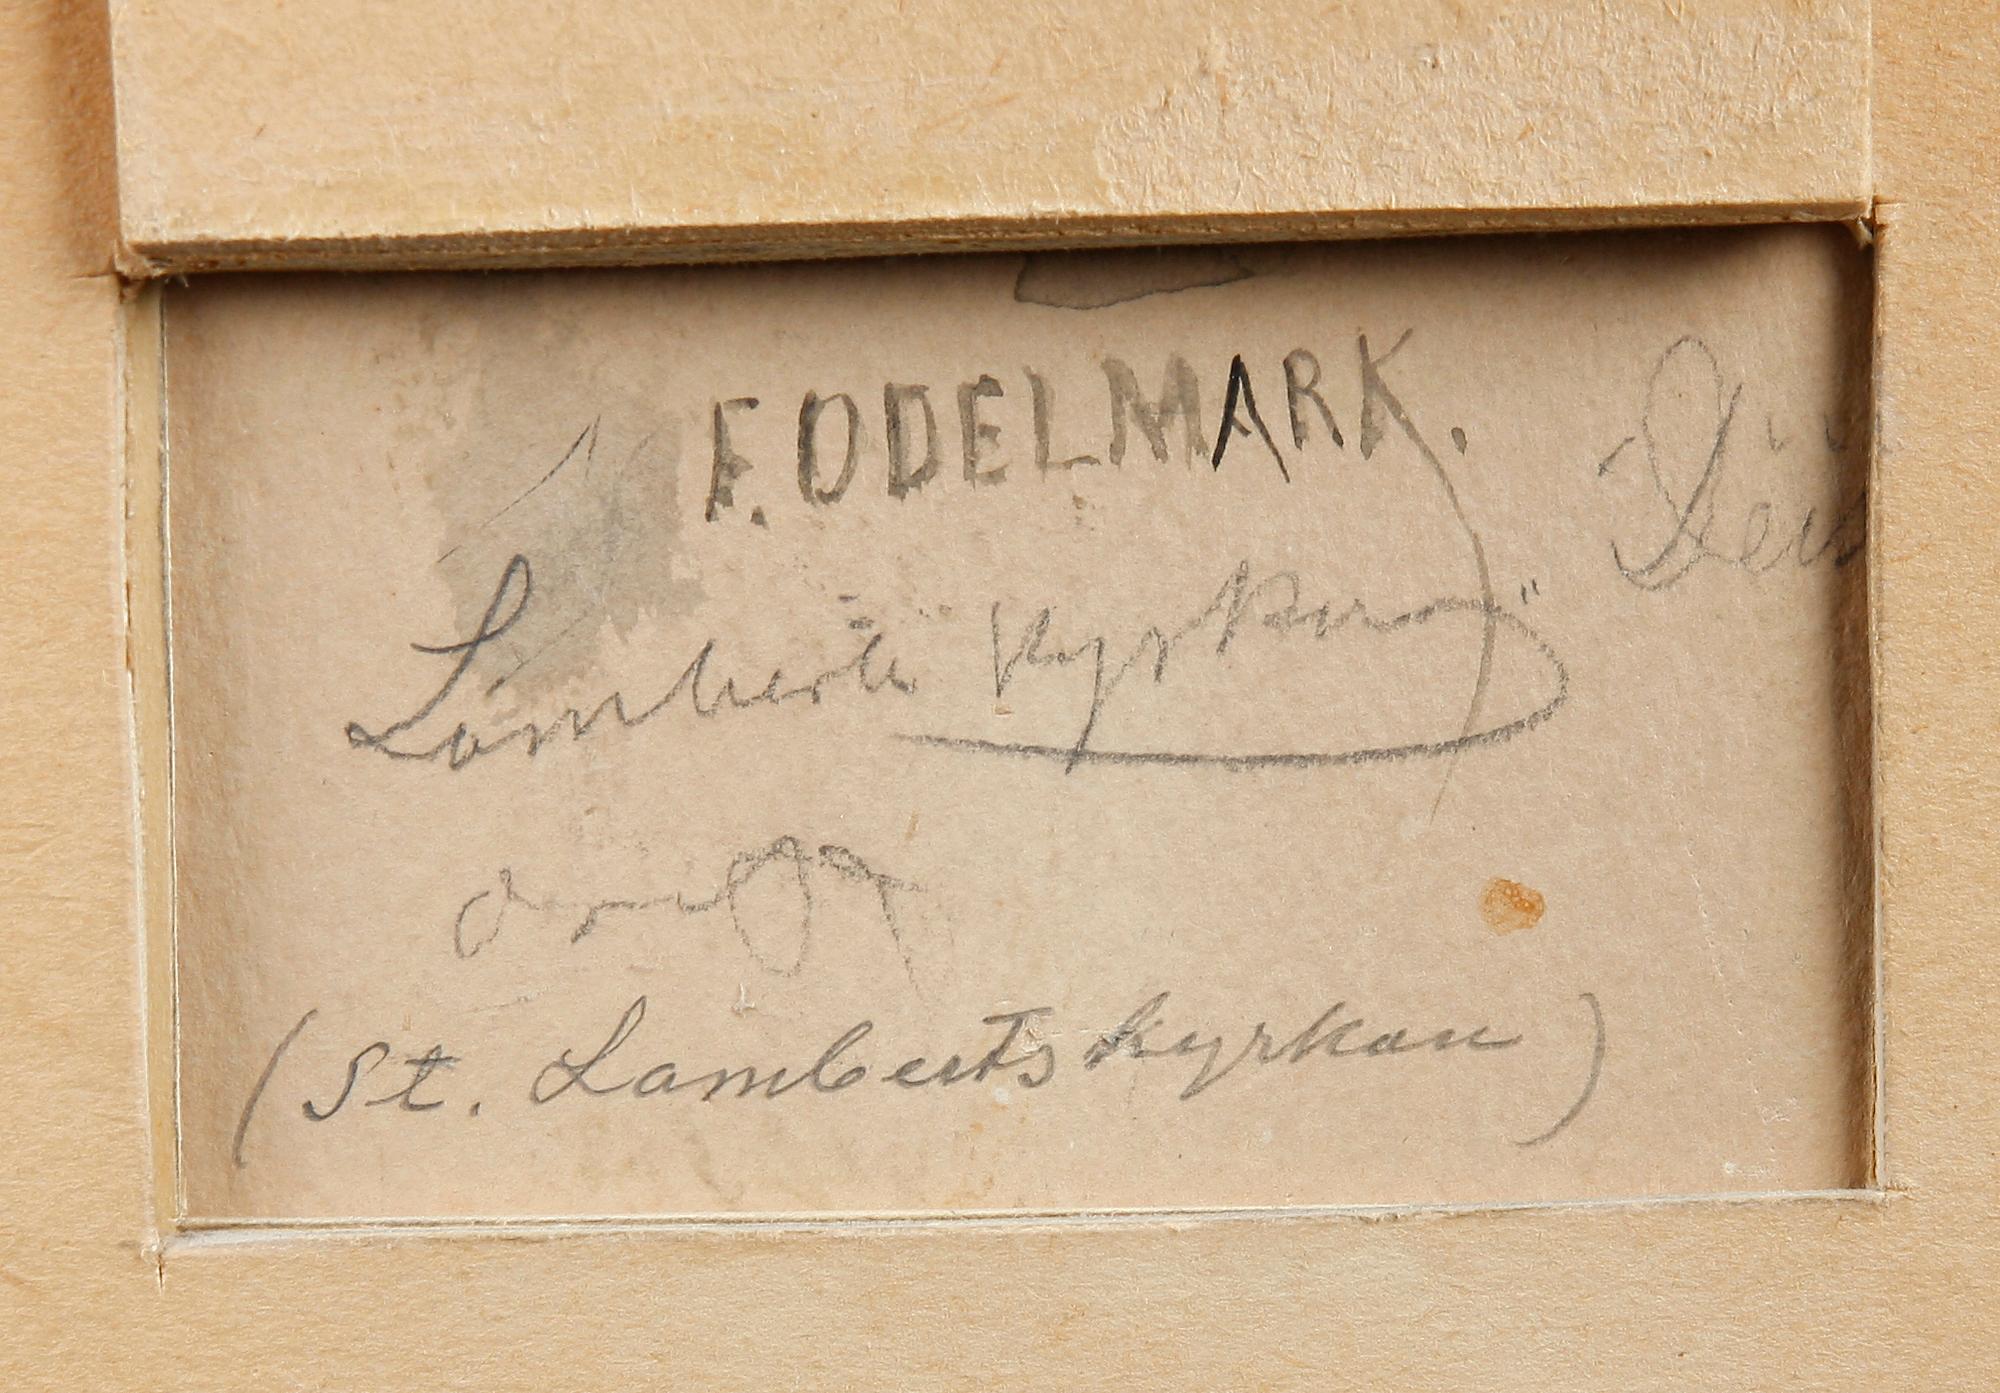 F. ODELMARK.
Lamberti Kyrkan"
(St. Lamberts kyrkan)